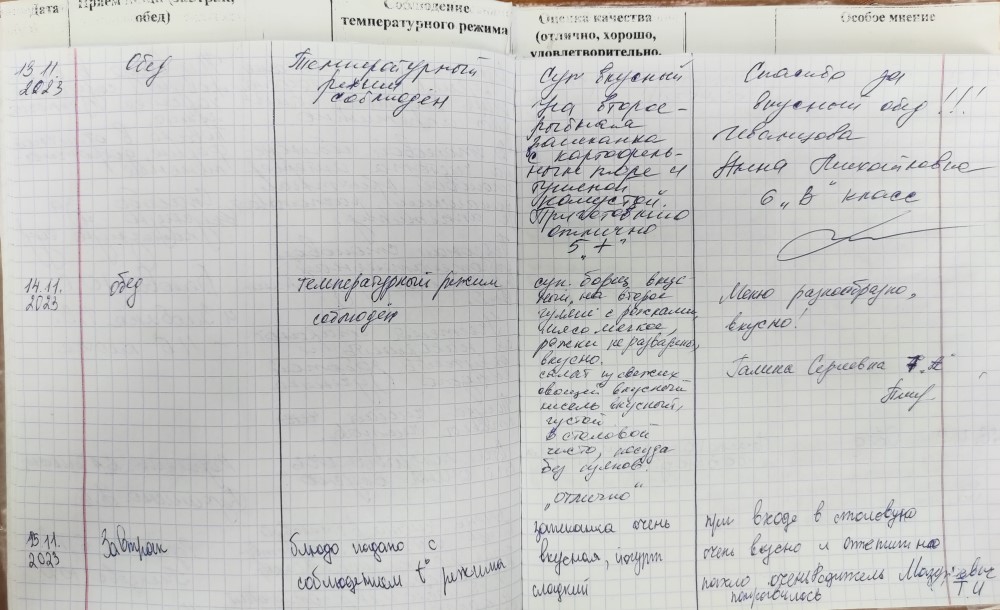 Дата
Прием пищи (завтрак,
обед)
Соблюдение
температурного режима
Оценка качества
(отлично, хорошо,
удовлетворительно,
Особое мнение
13.11.
2023
Обед
Температурный
режим
соблюдён
Суп вкусный
На второе -
рыбная
запеканка
с картофель-
ным пюре и
тушеной
капустой.
Приготовлено
отлично
5 „+"
Спасибо за
вкусный обед!!!
Иванцова
Анна
6 „В" класс
14.11.
2023
обед
температурный режим
соблюдён
суп. борщ вкус
ный, на второе
гуляш с рожками,
мясо мягкое,
рожки не разварены,
вкусно.
салат из свежих
овощей вкусный
кисель вкусный,
густой
в столовой
чисто, посуда
без сколов.
„отлично"
Меню разнообразно,
вкусно!
Галина Сергеевна
15.11.
2023
Завтрак
блюдо подано с
соблюдением t° режима
запеканка очень
вкусная, йогурт
сладкий
при входе в столовую
очень вкусно и аппетитно
пахло очень Родитель
понравилось
Т.И